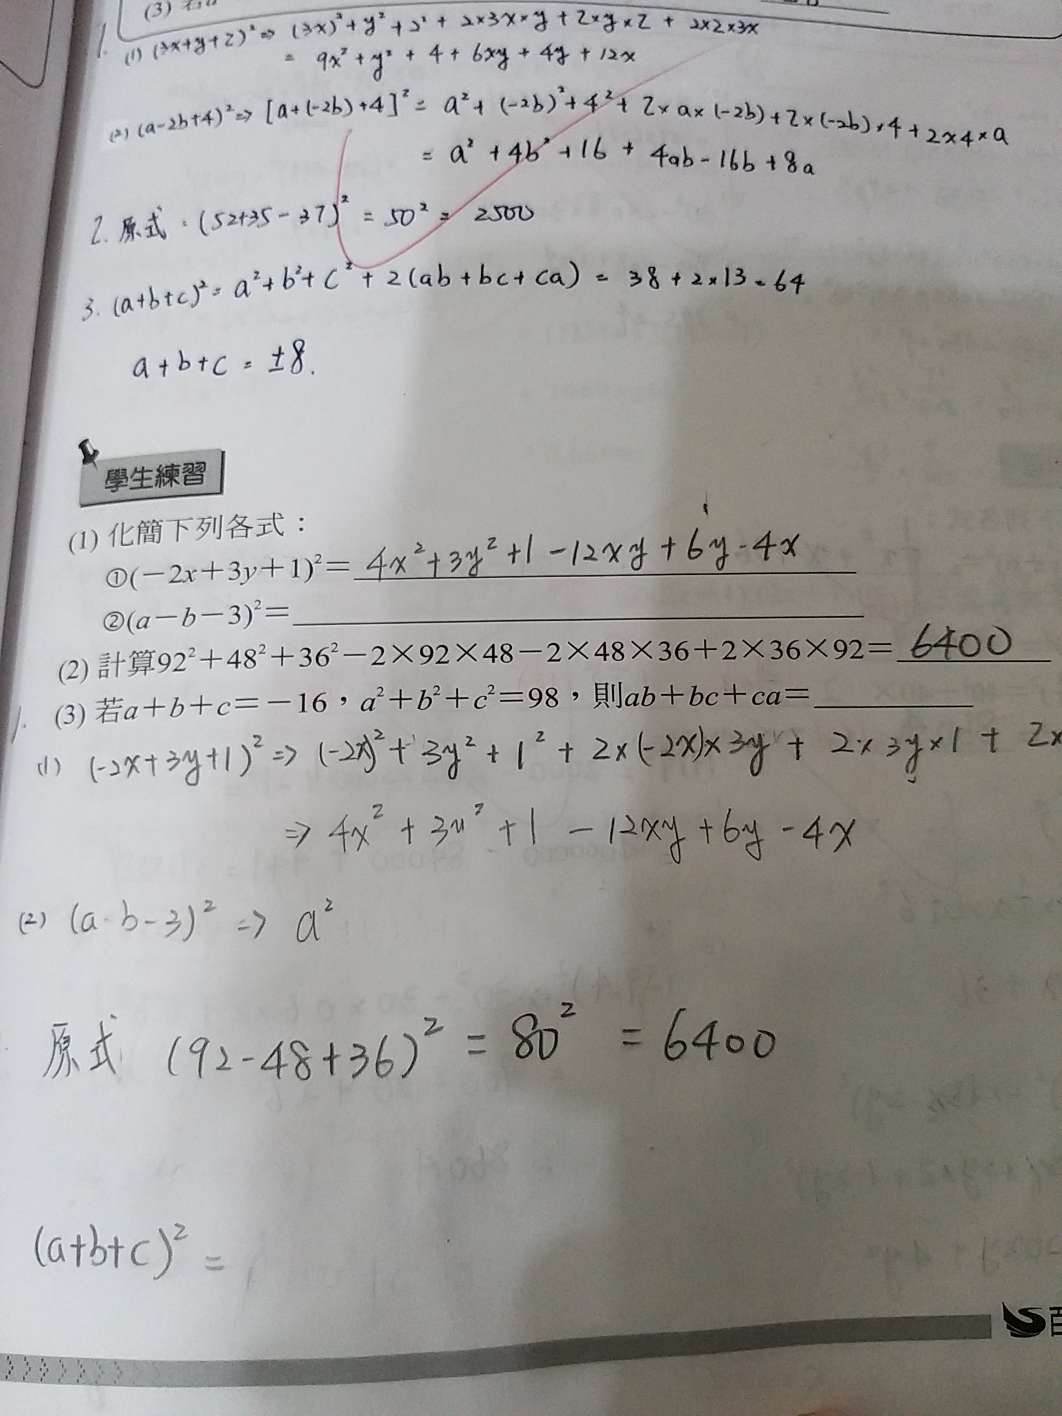 (3) 若
1. (1) (3x+y+2)² ⇒ (3x)²+y²+2²+2×3x×y+2×y×2+2×2×3x
= 9x²+y²+4+6xy+4y+12x
(2) (a-2b+4)² ⇒ [a+(-2b)+4]² = a²+(-2b)²+4²+2×a×(-2b)+2×(-2b)×4+2×4×a
= a²+4b²+16+4ab-16b+8a
2. 原式：(52+35-37)² = 50² = 2500
3. (a+b+c)² = a²+b²+c²+2(ab+bc+ca) = 38+2×13=64
a+b+c = ±8.
學生練習
(1) 化簡下列各式：
①(-2x+3y+1)²= 4x²+3y²+1-12xy+6y-4x
②(a-b-3)²=
(2) 計算92²+48²+36²-2×92×48-2×48×36+2×36×92= 6400
(3) 若a+b+c=-16，a²+b²+c²=98，則ab+bc+ca=
1.
(1) (-2x+3y+1)² ⇒ (-2x)²+3y²+1²+2×(-2x)×3y+2×3y×1+2x
⇒ 4x²+3y²+1-12xy+6y-4x
(2) (a-b-3)² ⇒ a²
原式 (92-48+36)² = 80² = 6400
(a+b+c)² =